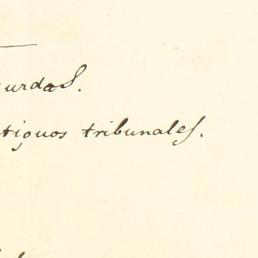 urdas.
tiguos tribunales.